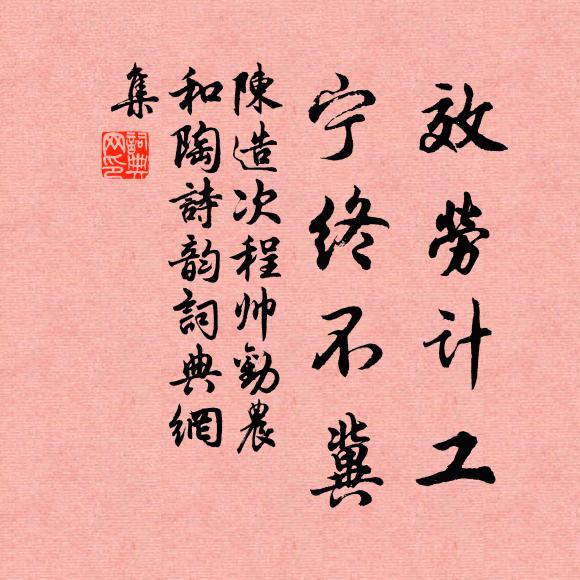 效劳计工
宁终不冀
陳造次程帅勸農
和陶詩韵詞典網
集
詞典
网印